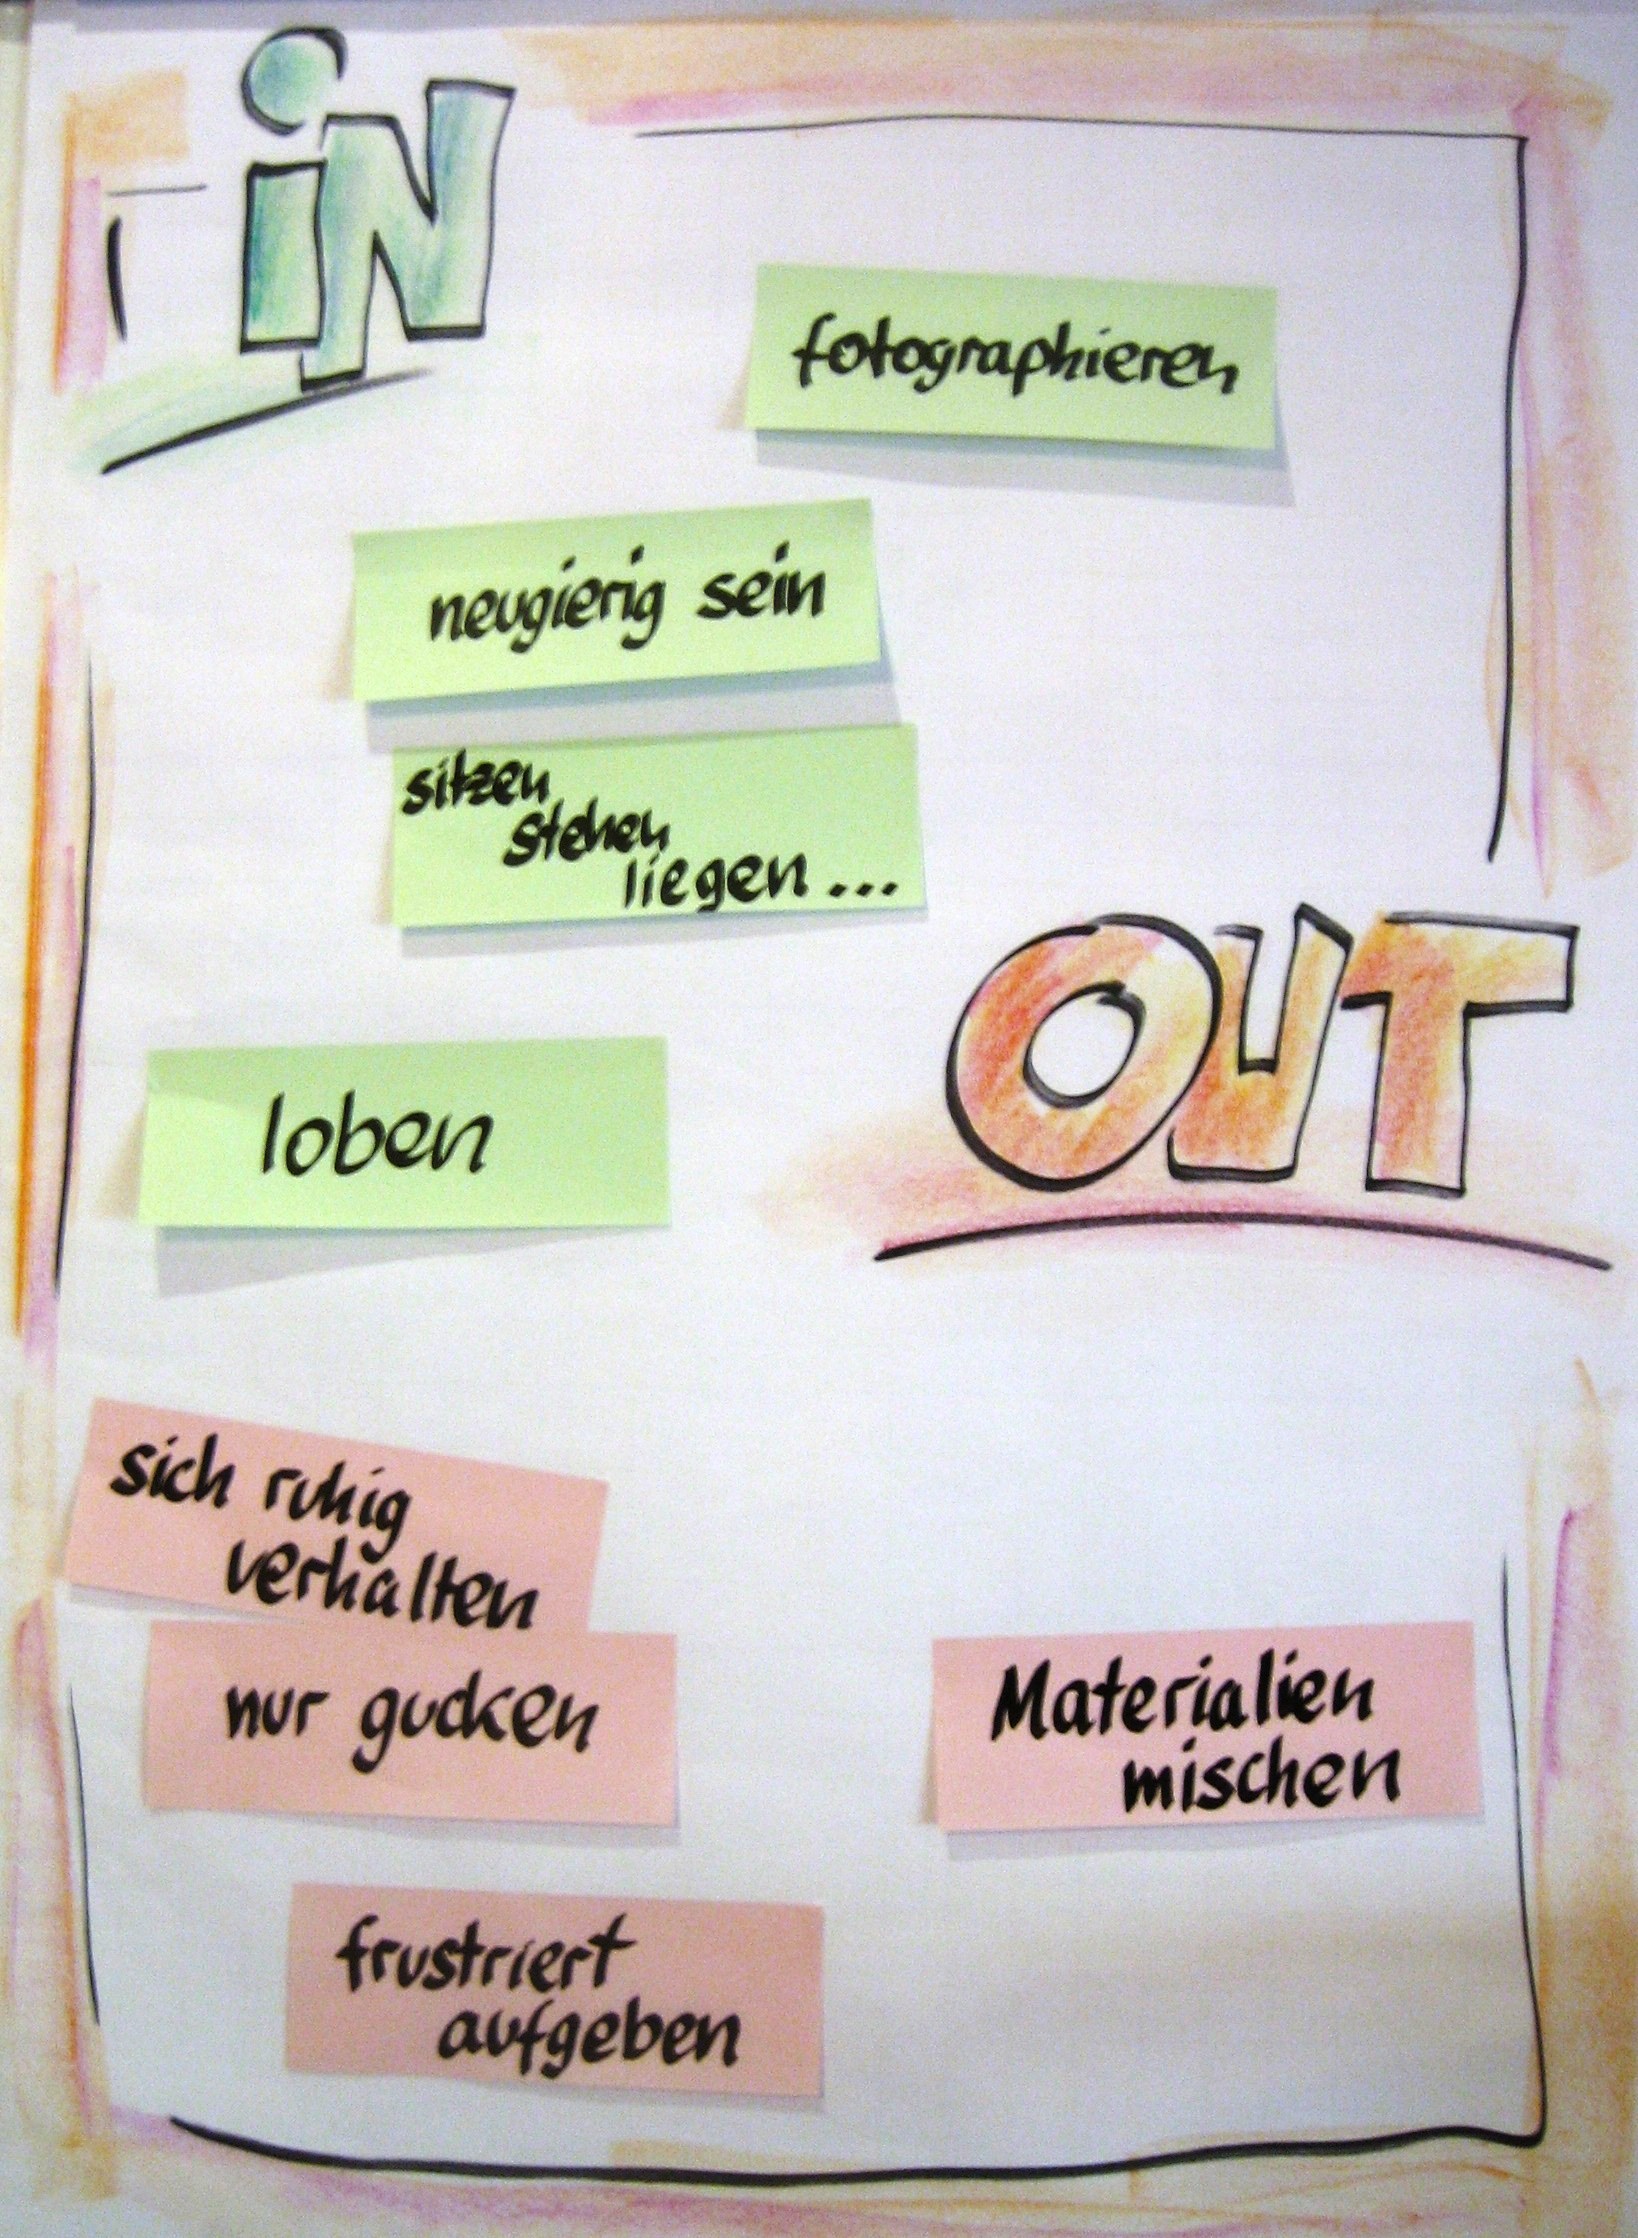 iN
fotographieren
neugierig sein
sitzen
stehen
liegen...
loben
OUT
sich ruhig
verhalten
nur gucken
Materialien
mischen
frustriert
aufgeben